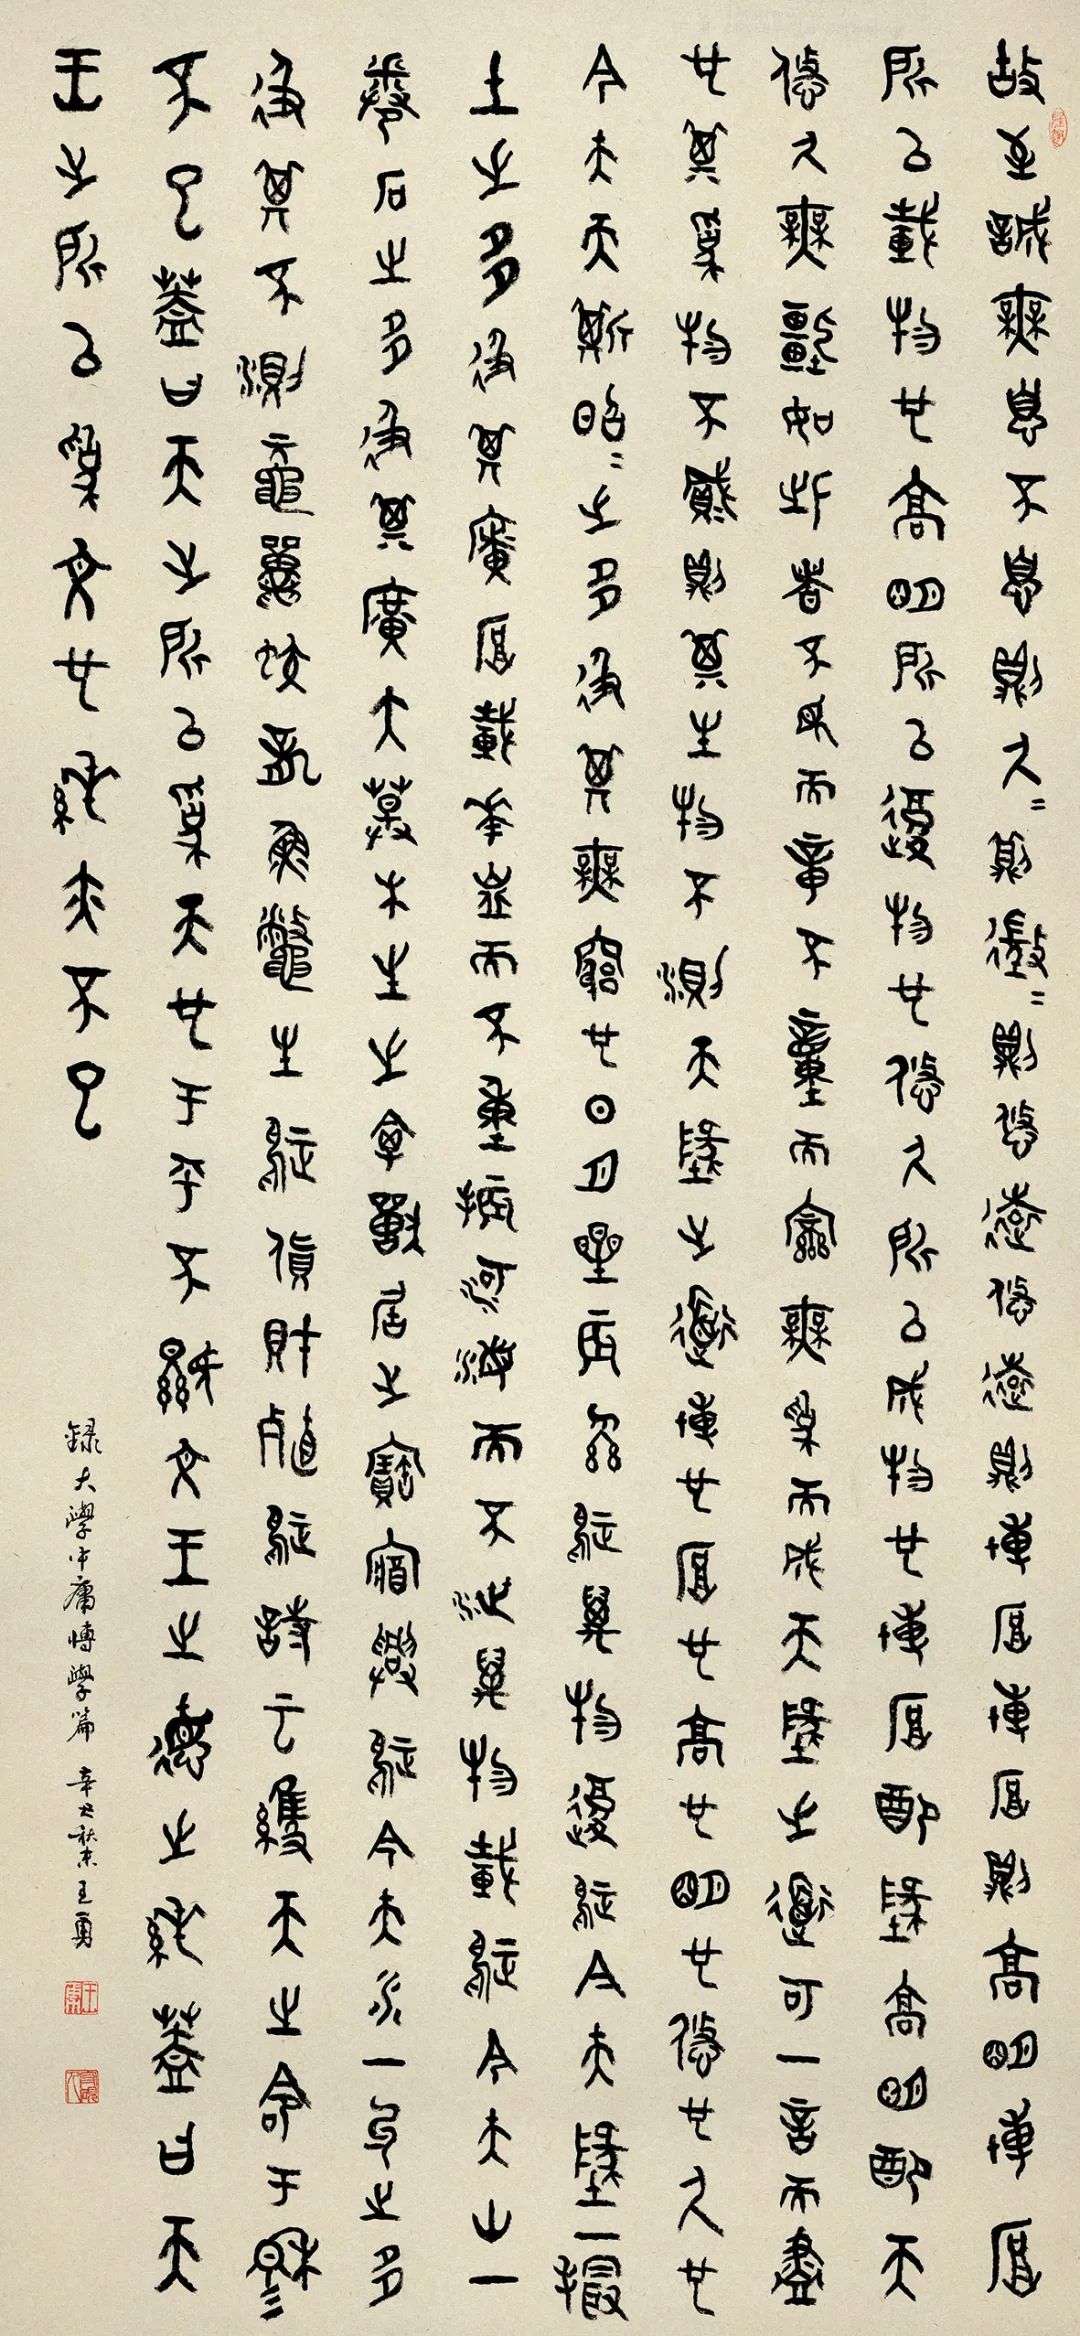 故至誠無息不息則久=則徵=則悠遠悠遠則博厚博厚則高明博厚
所以載物也高明所以覆物也悠久所以成物也博厚配地高明配天
悠久無疆如此者不見而章不動而變無為而成天地之道可一言而盡
也其為物不貳則其生物不測天地之道博也厚也高也明也悠也久也
今夫天斯昭=之多及其無窮也日月星辰繫焉萬物覆焉今夫地一撮
土之多及其廣厚載華嶽而不重振河海而不洩萬物載焉今夫山一
卷石之多及其廣大草木生之禽獸居之寶藏興焉今夫水一勺之多
及其不測黿鼉蛟龍魚鱉生焉貨財殖焉詩云維天之命于穆
不已蓋曰天之所以為天也于乎不顯文王之德之純蓋曰天
王之所以為文也純亦不已
錄大學中庸博學篇 辛丑秋末王勇